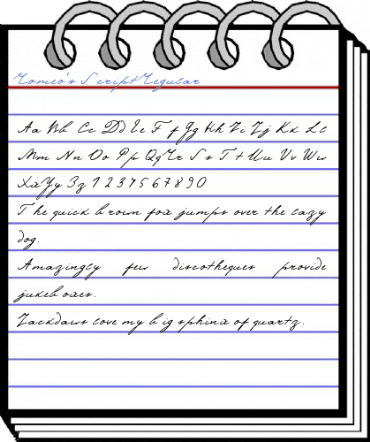 Romeo's Script Regular
Aa Bb Cc Dd Ee Ff Gg Hh Ii Jj Kk Ll
Mm Nn Oo Pp Qq Rr Ss Tt Uu Vv Ww
Xx Yy Zz 1 2 3 4 5 6 7 8 9 0
The quick brown fox jumps over the lazy
dog.
Amazingly few discotheques provide
jukeboxes.
Jackdaws love my big sphinx of quartz.